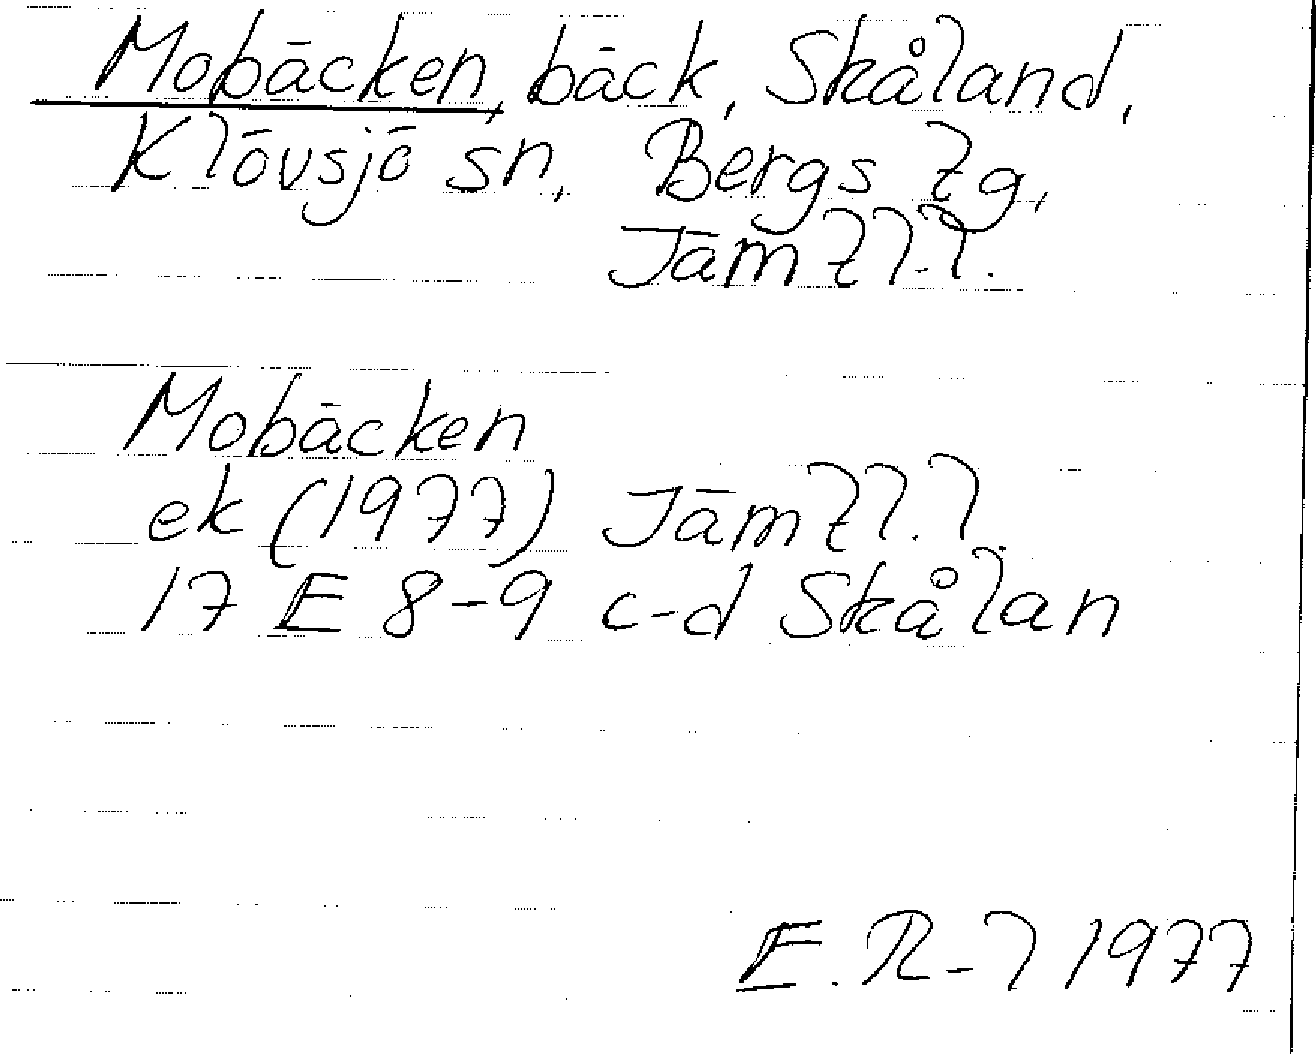 Mobäcken, bäck, Skåland,
Klövsjö sn, Bergs tg,
Jämtl.l.
Mobäcken
ek (1977) Jämtl.l.
17 E 8-9 c-d Skålan
E.R-l 1977